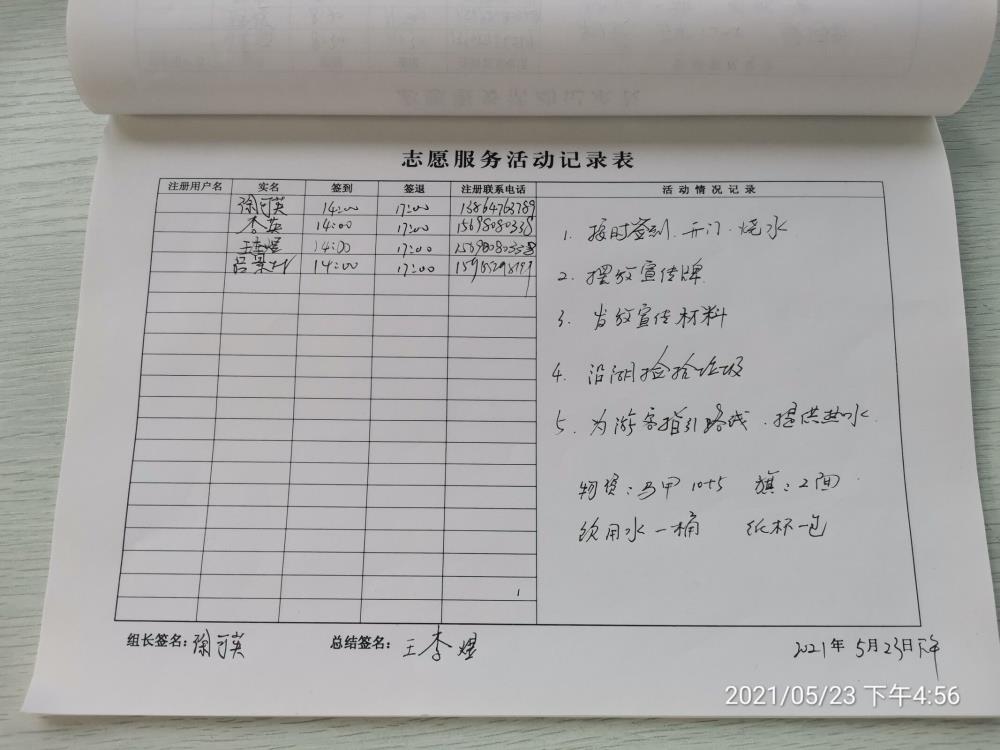 志愿服务活动记录表
注册用户名 实名 签到 签退 注册联系电话 活动情况记录
徐可英 14:00 17:00 15864763789
李英 14:00 17:00 15698080338
王李煜 14:00 17:00 15698080338
吕梁 14:00 17:00
1. 按时签到.开门.烧水
2. 摆放宣传牌
3. 发放宣传材料
4. 沿湖捡拾垃圾
5. 为游客指引路线.提供热水.
物资:马甲10+5 旗:2面.
饮用水一桶 纸杯一包
组长签名:徐可英 总结签名:王李煜 2021年5月23日下午
2021/05/23 下午4:56